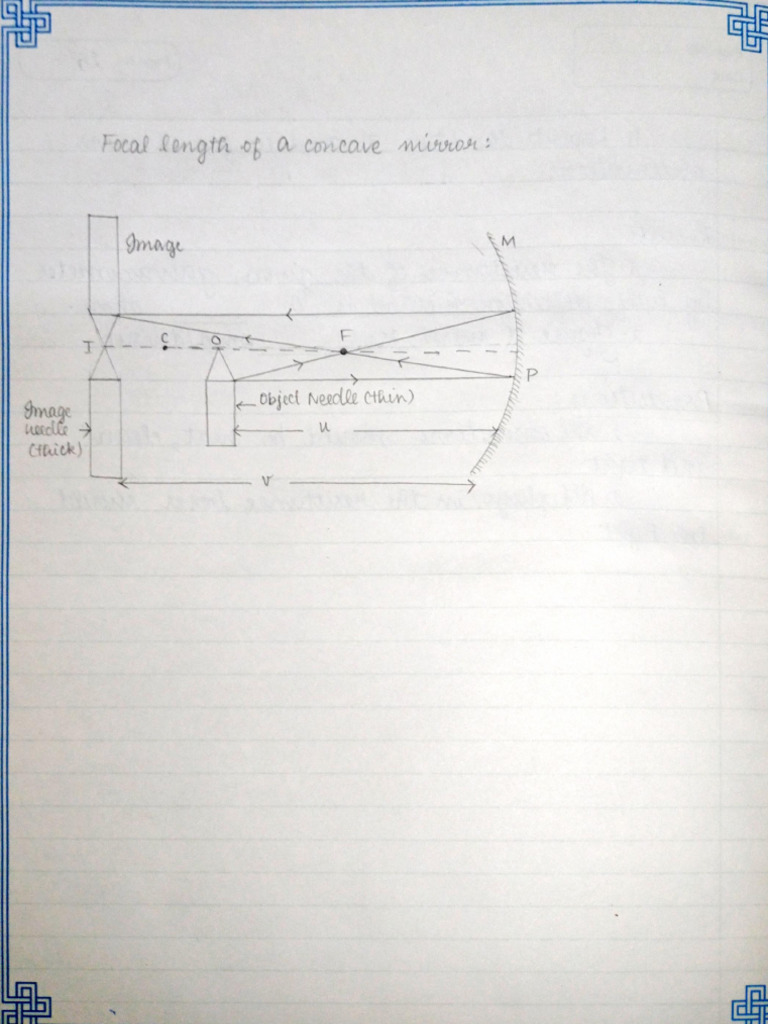 Focal length of a concave mirror:
Image
M
I
C
O
F
P
Object Needle (thin)
u
Image
needle
(thick)
v